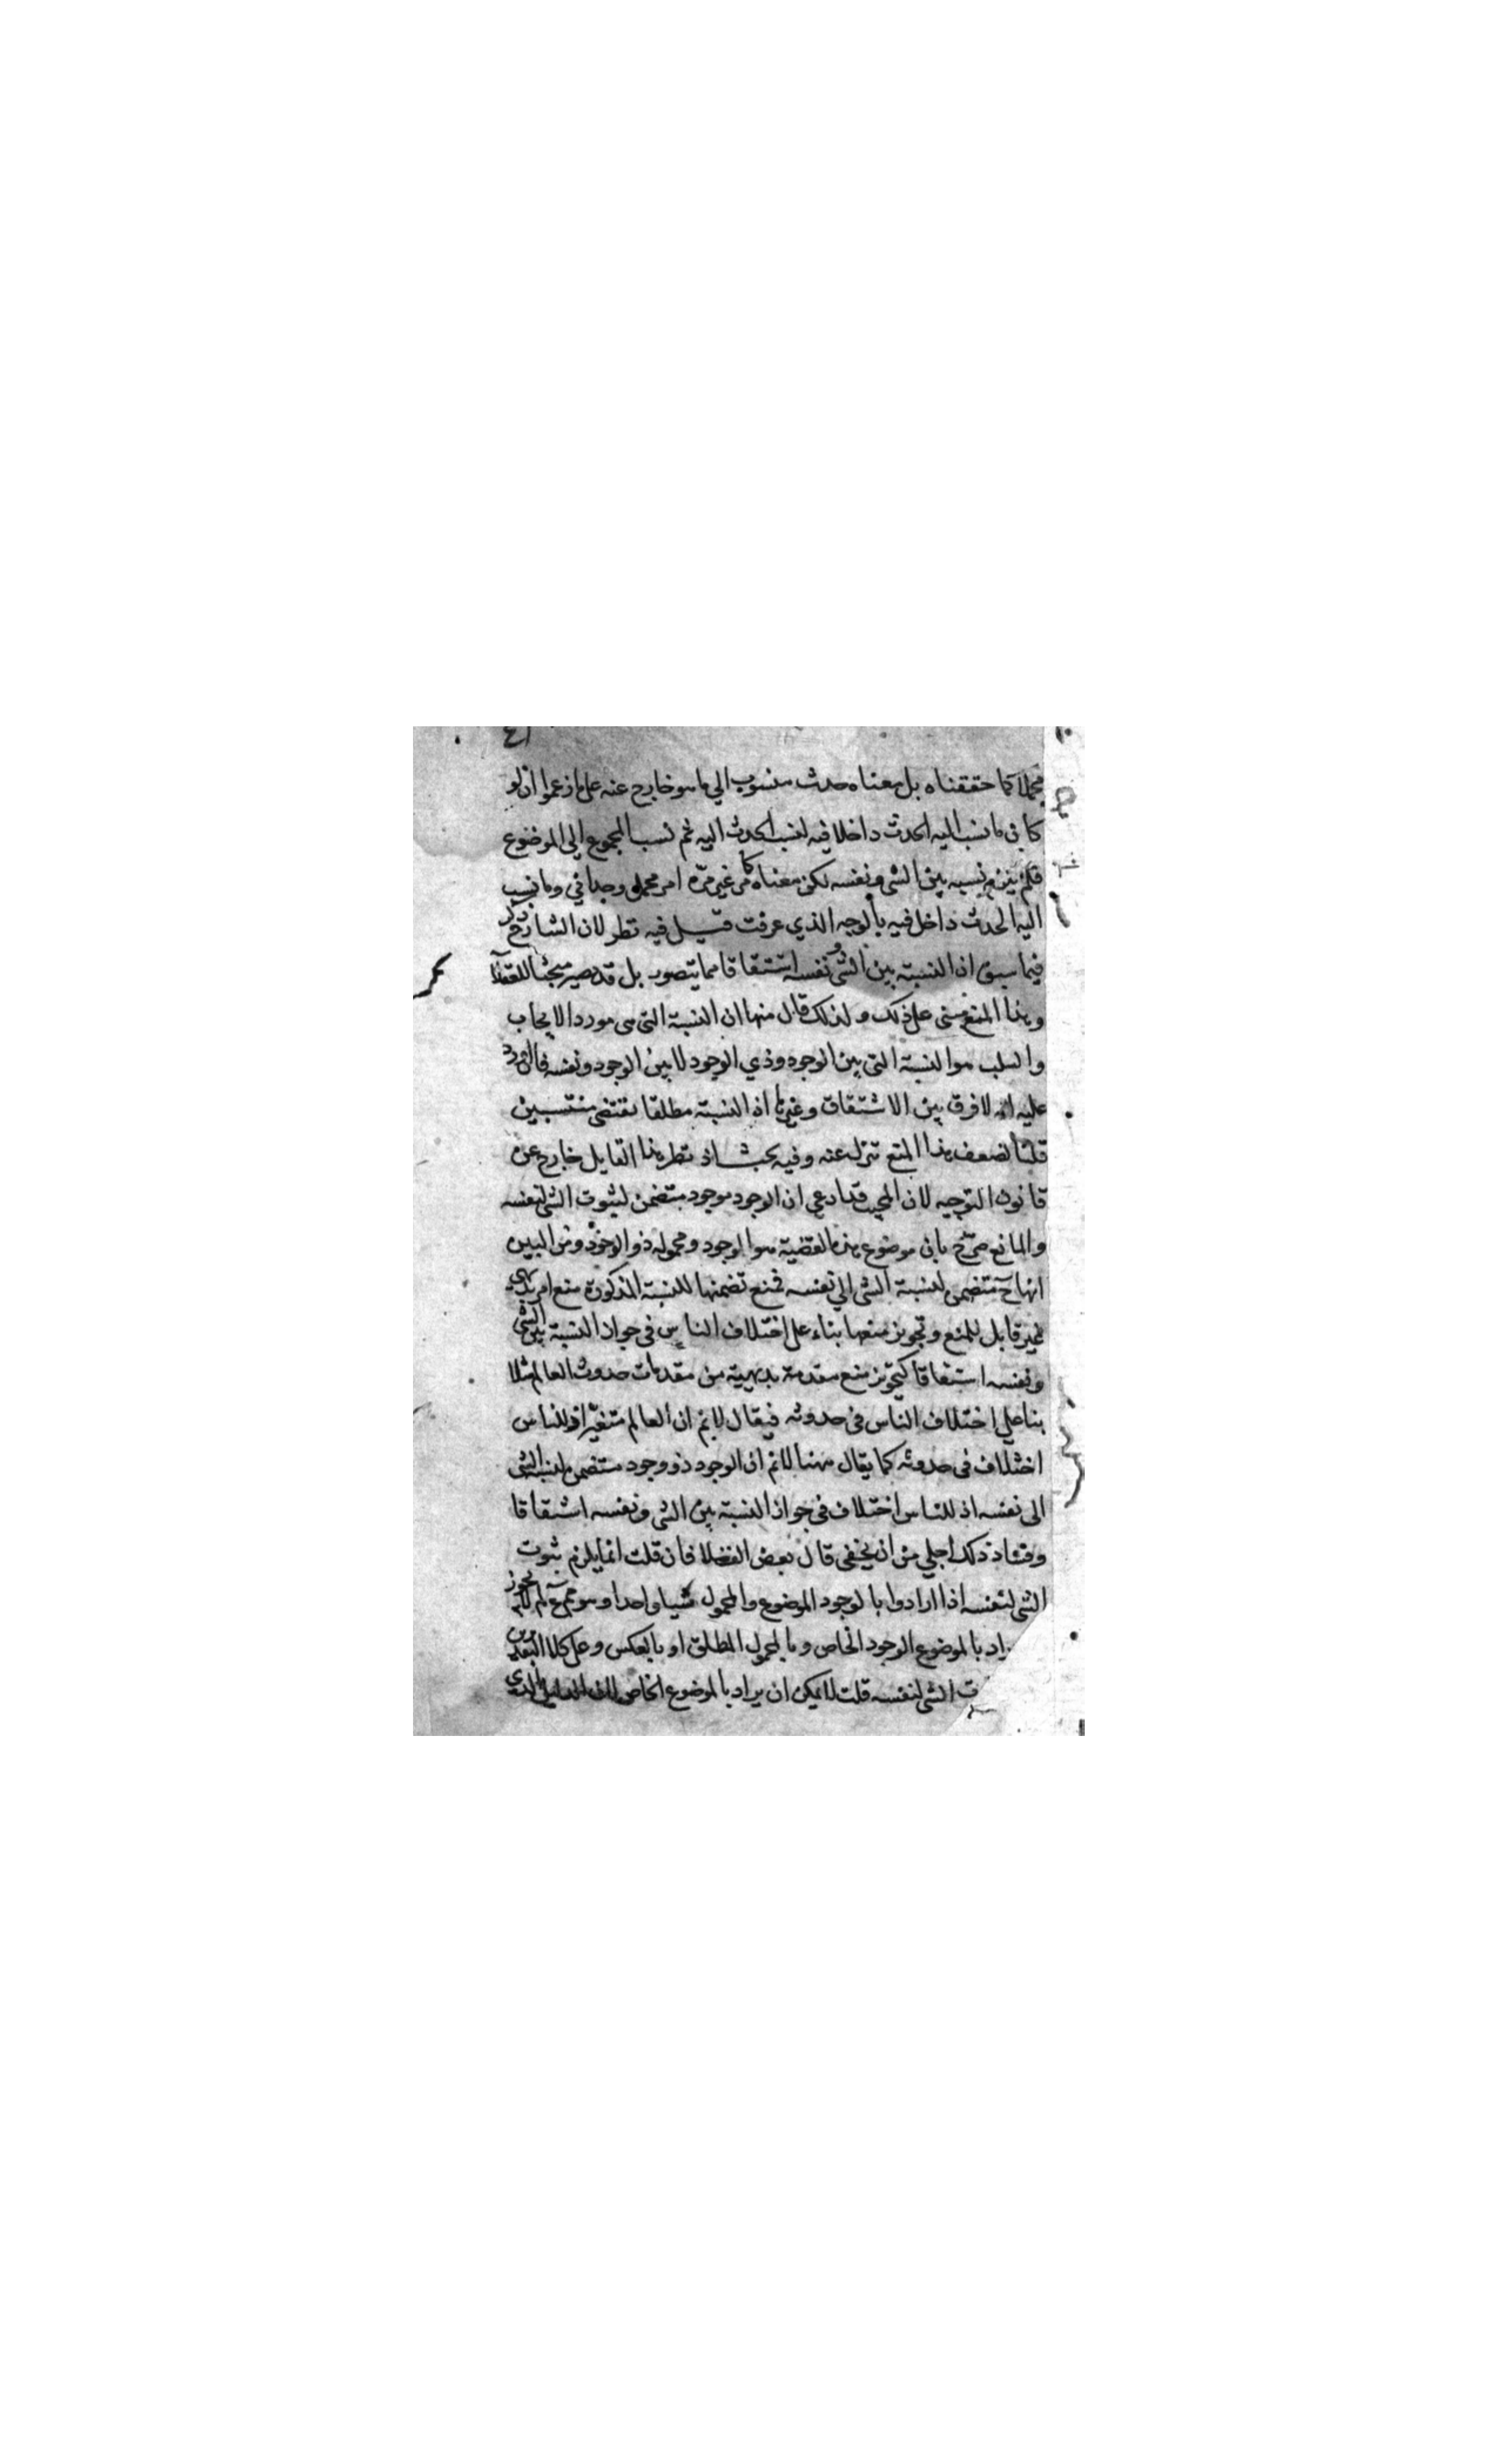 مجملا كما حققناه بل معناه حدث منسوب الي ما هو خارج عنه علي ما زعموا اذ لو
كان ما نسب اليه الحدث داخلا فيه لنسب الحدث اليه ثم نسب المجموع الي الموضوع
فلم نسبة بين الشي ونفسه لكن معناه كما مر غير مرة امر مجمل وحداني وما نسب
اليه الحدث داخل فيه بالوجه الذي عرفت قيل فيه نظر لان الشارح ذكر
فيما سبق ان النسبة بين الشي ونفسه اشتقاقا مما يتصور بل قد يصير مبحثا للعقلا
وهذا المنع مبني علي ذلك ولذلك قال منها ان النسبة التي هي مورد الايجاب
والسلب هو النسبة التي بين الوجود وذي الوجود لا بين الوجود ونفسه فان اورد
عليه انه لا فرق بين الاشتقاق وغيره اذ النسبة مطلقا تقتضي منتسبين
قلنا لضعف هذا المنع تنزل عنه وفيه بحث اذ نظر هذا القايل خارج عن
قانون التوجيه لان المجيب قد ادعي ان الوجود موجود متضمن لثبوت الشي لنفسه
والمانع صرح بان موضوع هذه القضية هو الوجود ومحموله ذو الوجود ومن البين
انها ح متضمن لنسبة الشي الي نفسه فمنع تضمنها للنسبة المذكورة منع امر بديهي
غير قابل للمنع وتجويز منعها بناء علي اختلاف الناس في جواز النسبة بين الشي
ونفسه اشتقاقا كتجويز منع مقدمة بديهية من مقدمات حدوث العالم مثلا
بنا علي اختلاف الناس في حدوثه فيقال لانم ان العالم متغير اذ للناس
اختلاف في حدوثه كما يقال ههنا لانم ان الوجود ذو وجود متضمن لنسبة الشي
الي نفسه اذ للناس اختلاف في جواز النسبة بين الشي ونفسه اشتقاقا
وفساد ذلك اجلي من ان يخفي قال بعض الفضلا فان قلت انما يلزم ثبوت
الشي لنفسه اذا ارادوا بالوجود الموضوع والمحمول شيا واحدا وهو مم لم لا يجوز
يراد بالموضوع الوجود الخاص وبالمحمول المطلق او بالعكس وعلي كلا التقديرين
الشي لنفسه قلت لا يمكن ان يراد بالموضوع الخاص لان الدليل الذي